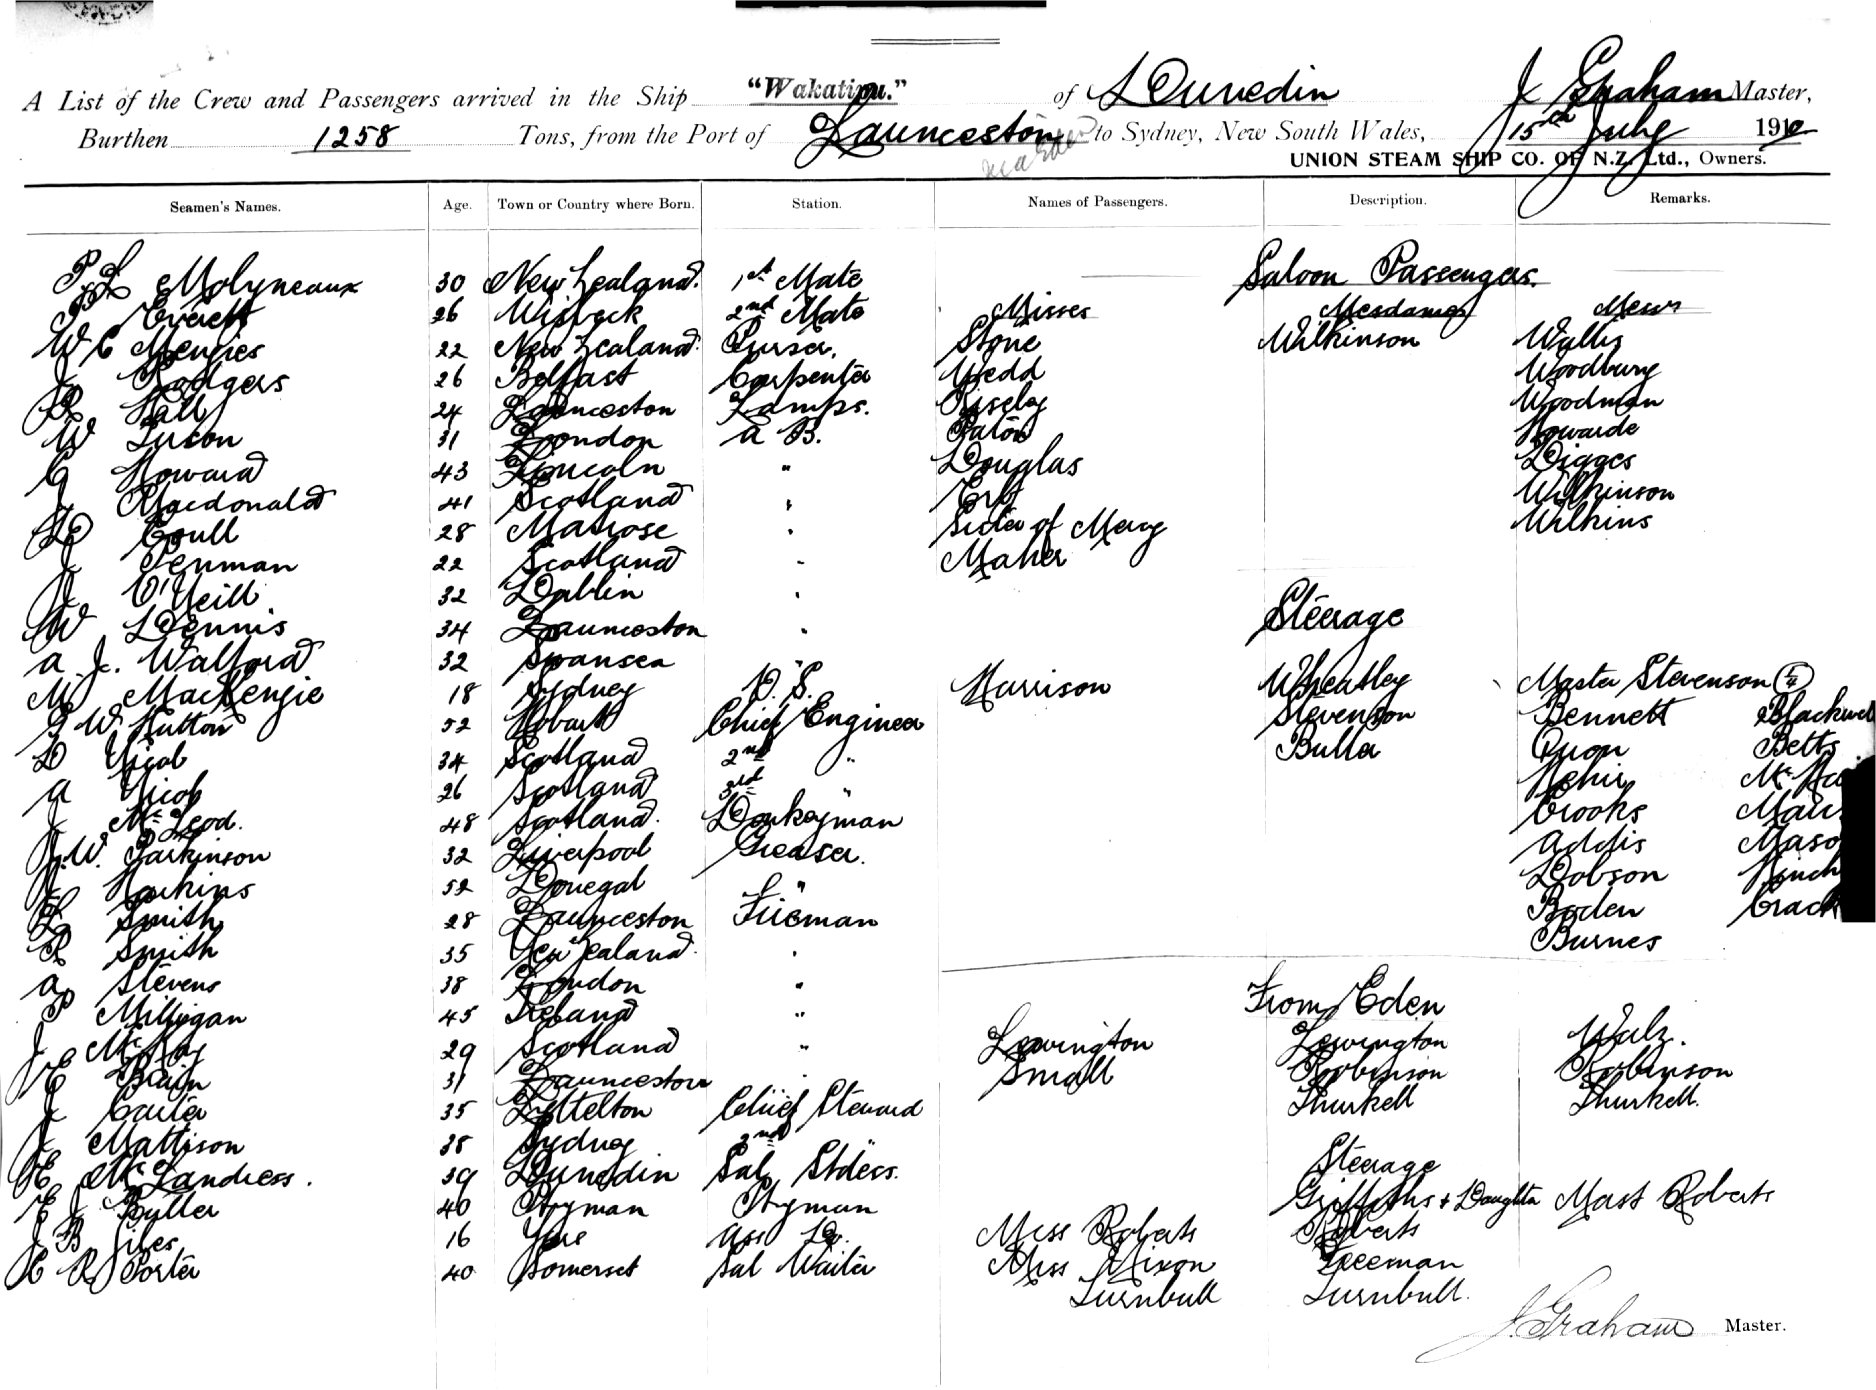 "Wakatipu."
A List of the Crew and Passengers arrived in the Ship of Dunedin J Graham Master,
Burthen 1258 Tons, from the Port of Launceston via Eden to Sydney, New South Wales, 15th July 1910
UNION STEAM SHIP CO. OF N.Z. Ltd., Owners.
Seamen's Names. Age. Town or Country where Born. Station. Names of Passengers. Description. Remarks.
P L Molyneaux 30 New Zealand. 1st Mate Saloon Passengers.
Everett 26 Wisbeck 2nd Mate Misses Mesdames Messrs
W C Menzies 22 New Zealand. Purser. Stone Wilkinson Wallis
J Rodgers 26 Belfast Carpenter Wedd Woodbury
R Hall 24 Launceston Lamps. Riseley Woodman
W Luxon 31 London A B. Paton Howarde
C Howard 43 Lincoln " Douglas Digges
J Macdonald 41 Scotland " Wilkinson
D Coull 28 Matrose " Sister of Mercy Wilkins
J Penman 22 Scotland " Maher
J O'Neill 32 Dublin "
W Dennis 34 Launceston " Steerage
A. J. Walford 32 Swansea "
M MacKenzie 18 Sydney O. S. Harrison Wheatley Master Stevenson
G W. Hutton 52 Hobart Chief Engineer Stevenson Bennett
D Nicol 34 Scotland 2nd " Buller Quon Betts
A Nicol 26 Scotland 3rd "
J McLeod. 48 Scotland. Donkeyman Crooks
J. W. Parkinson 32 Liverpool Greaser. Addis
J Harkins 52 Donegal " Dobson
L Smith 28 Launceston Fireman Boden
R Smith 35 New Zealand. " Burnes
A Stevens 38 London "
P Milligan 45 Ireland " From Eden
J McKay 29 Scotland " Lewington Lewington Walz.
E Bain 31 Launceston " Small Robinson Robinson
J Carter 35 Lyttelton Chief Steward Thurkell Thurkell.
J Mattison 38 Sydney 2nd "
E McLandress. 39 Dunedin Sal Stdess. Steerage
E J Buller 40 Ptryman Griffiths & Daughter Mast Roberts
J B Giles 16 Ass Do. Miss Roberts Roberts
H R Porter 40 Somerset Sal Waiter Miss Nixon Freeman
Turnbull Turnbull.
J. Graham Master.